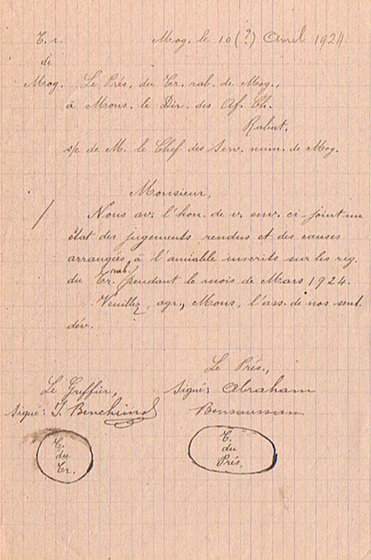 T. r. Mog. le 10 (?) Avril 1924.
de
Mog. Le Prés. du Tr. rab. de Mog.,
à Mons. le Dir. des Af. Ch.
Rabat.
s/c de M. le Chef des Serv. mun. de Mog.
Monsieur,
Nous av. l'hon. de v. env. ci-joint un
état des jugements rendus et des causes
arrangées à l'amiable inscrits sur les reg.
du Tr. rab. pendant le mois de Mars 1924.
Veuillez, agr., Mons, l'ass. de nos sent.
dév.
Le Prés.,
Le Greffier, Signé: Abraham
Signé: J. Benchimol Bensoussan
T. du Tr.
T. du Prés.